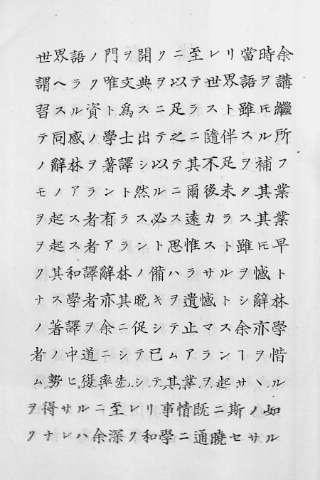 世界語ノ門ヲ開クニ至レリ當時余
謂ヘラク唯文典ヲ以テ世界語ヲ講
習スル資ト爲スニ足ラスト雖モ繼
テ同感ノ學士出テ之ニ隨伴スル所
ノ辭林ヲ著譯シ以テ其不足ヲ補フ
モノアラント然ルニ爾後未タ其業
ヲ起ス者有ラス必ス遠カラス其業
ヲ起ス者アラント思惟スト雖モ早
ク其和譯辭林ノ備ハラサルヲ憾ト
ナス學者亦其晩キヲ遺憾トシ辭林
ノ著譯ヲ余ニ促シテ止マス余亦學
者ノ中道ニシテ已ムアランヿヲ惜
ム勢ヒ率先シテ其業ヲ起サヽル
ヲ得サルニ至レリ事情既ニ斯ノ如
クナレハ余深ク和學ニ通曉セサル